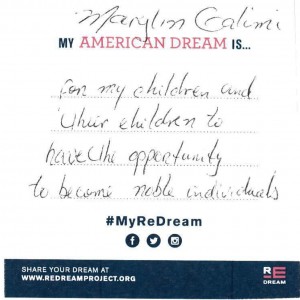 Marylin Galimi
MY AMERICAN DREAM IS...
For my children and
their children to
have the opportunity
to become noble individuals
#MyReDream
SHARE YOUR DREAM AT
WWW.REDREAMPROJECT.ORG
RE
DREAM